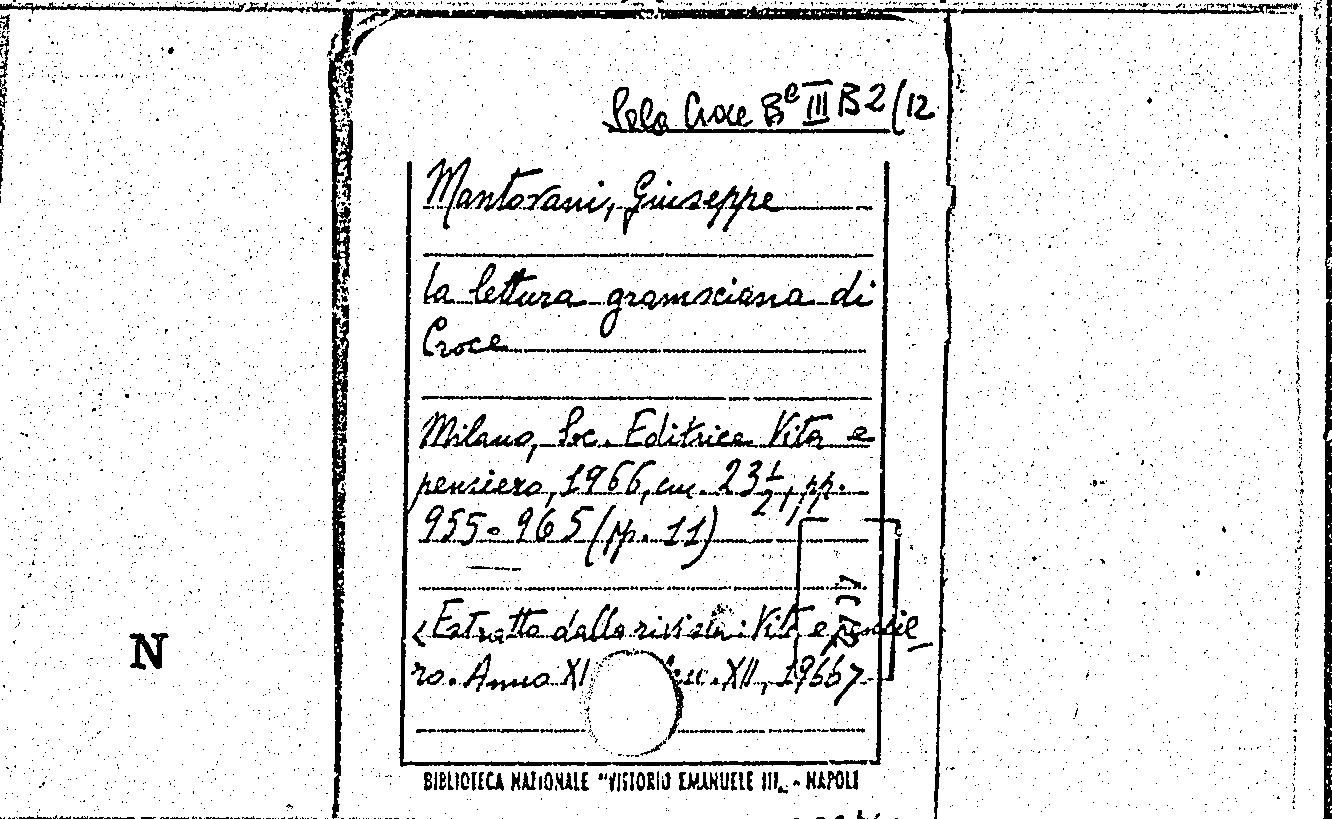 Sala Croce Bᵉ III B2/12
Mantovani, Giuseppe
La lettura gramsciana di
Croce
Milano, Soc. Editrice Vita e
pensiero, 1966, cm. 23½, pp.
955-965 (pp. 11)
<Estratto dalla rivista: Vita e pensie_
ro. Anno XL . XII, 1966>
N
BIBLIOTECA NAZIONALE "VITTORIO EMANUELE III„ - NAPOLI